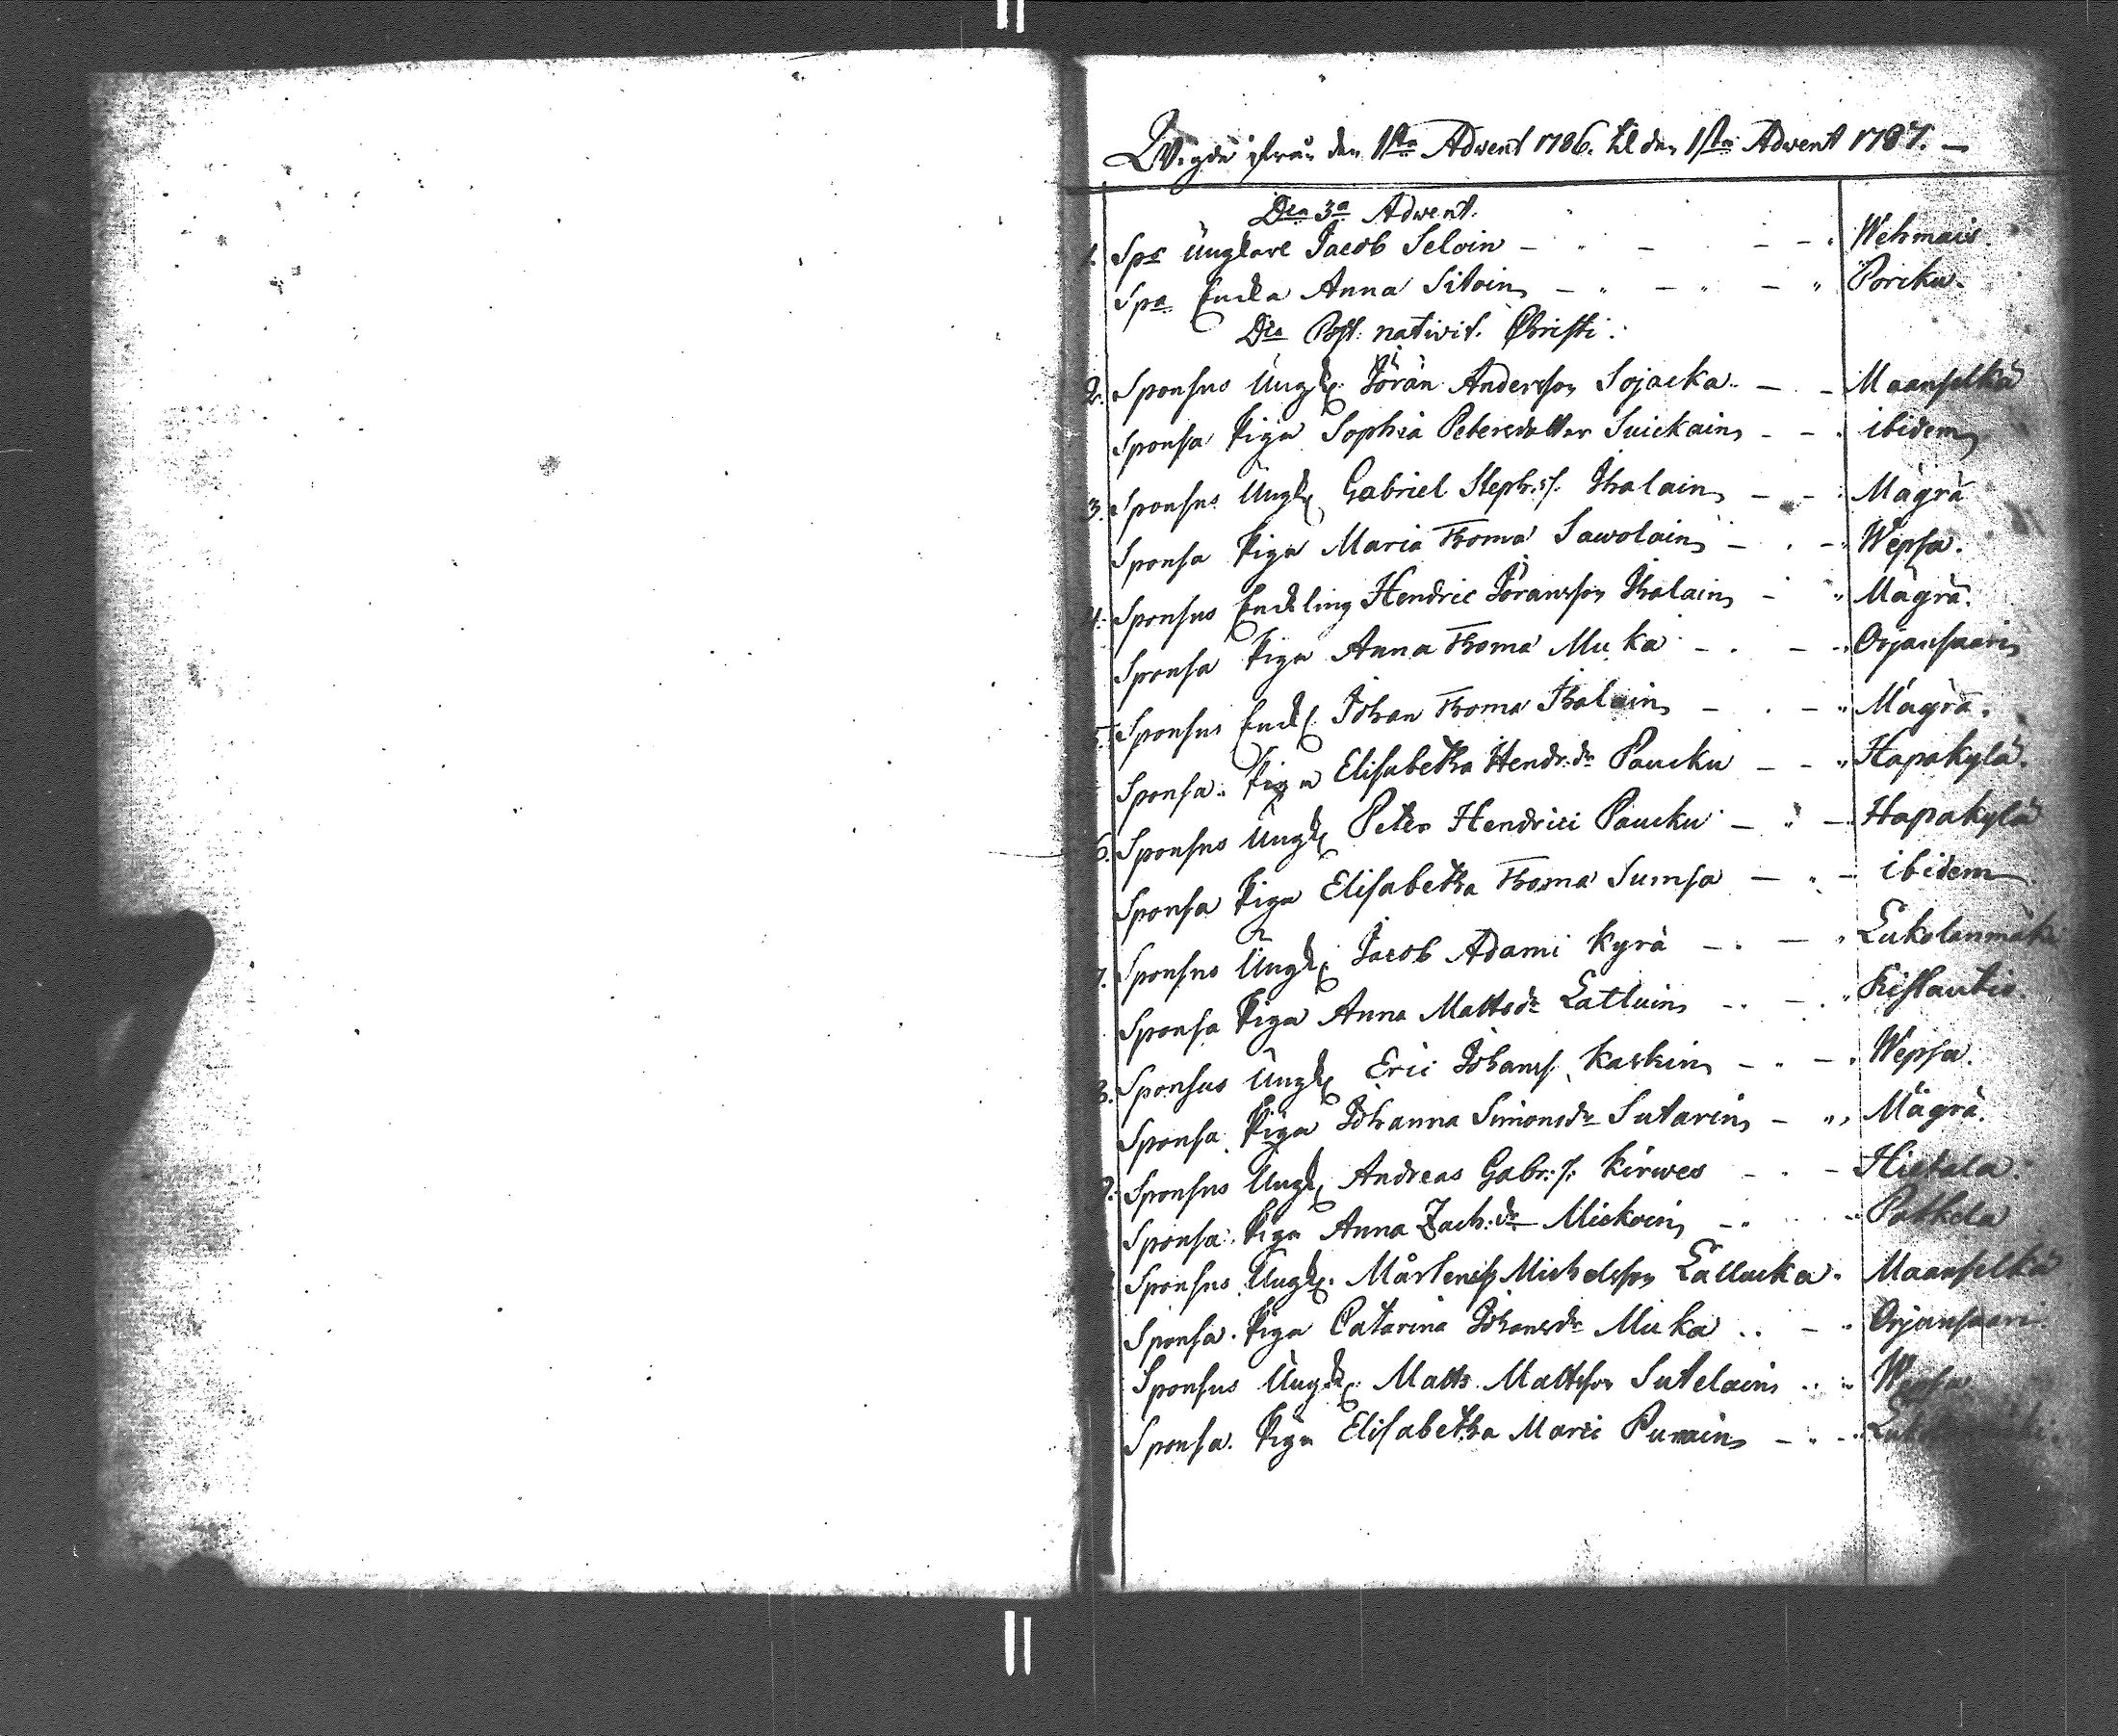 Wigde ifrån den 1sta Advent 1786. til den 1sta Advent 1787. —
Die 3a Advent.
1. Sps Ungkarl Jacob Seloin — Wehmais.
Spa Enka Anna Sitoin — Poricku.
Die Post. nativit. Christi.
2. Sponsus Ungk. Jörän Andersson Sojacka — Maanselkä
Sponsa Piga Sophia Petersdotter Suickain — ibidem
3. Sponsus Ungk. Gabriel Steph:s. Ihalain — Mägrä
Sponsa Piga Maria Thomæ Sawolain — Wepsa.
4. Sponsus Enkling Hendric Jöransson Ihalain — Mägrä.
Sponsa Piga Anna Thomæ Muka — Orjansaari
5. Sponsus Enkl. Johan Thomæ Ihalain — Mägrä.
Sponsa Piga Elisabetha Hendr:dr Paucku — Hapakylä.
6. Sponsus Ungk. Peter Hendrici Paucku — Hapakylä
Sponsa Piga Elisabetha Thomæ Sumsa — ibidem
7. Sponsus Ungk. Jacob Adami Kyrä — Lukolanmäki
Sponsa Piga Anna Mattsdr Lattuin — Ristautio.
8. Sponsus Ungk. Eric Johanss. Kaskin — Wepsa.
Sponsa Piga Johanna Simonsdr Sutarin — Mägrä.
9. Sponsus Ungk. Andreas Gabr:s. Kirwes — Hietala.
Sponsa Piga Anna Zach:dr Mickoin — Potkela
Sponsus Ungk. Mårten Michelsson Lallucka. Maanselkä
Sponsa Piga Catarina Johansdr Muka — Orjansaari
Sponsus Ungk. Matts Mattsson Sutelain — Wepsa
Sponsa Piga Elisabetha Marci Purain —